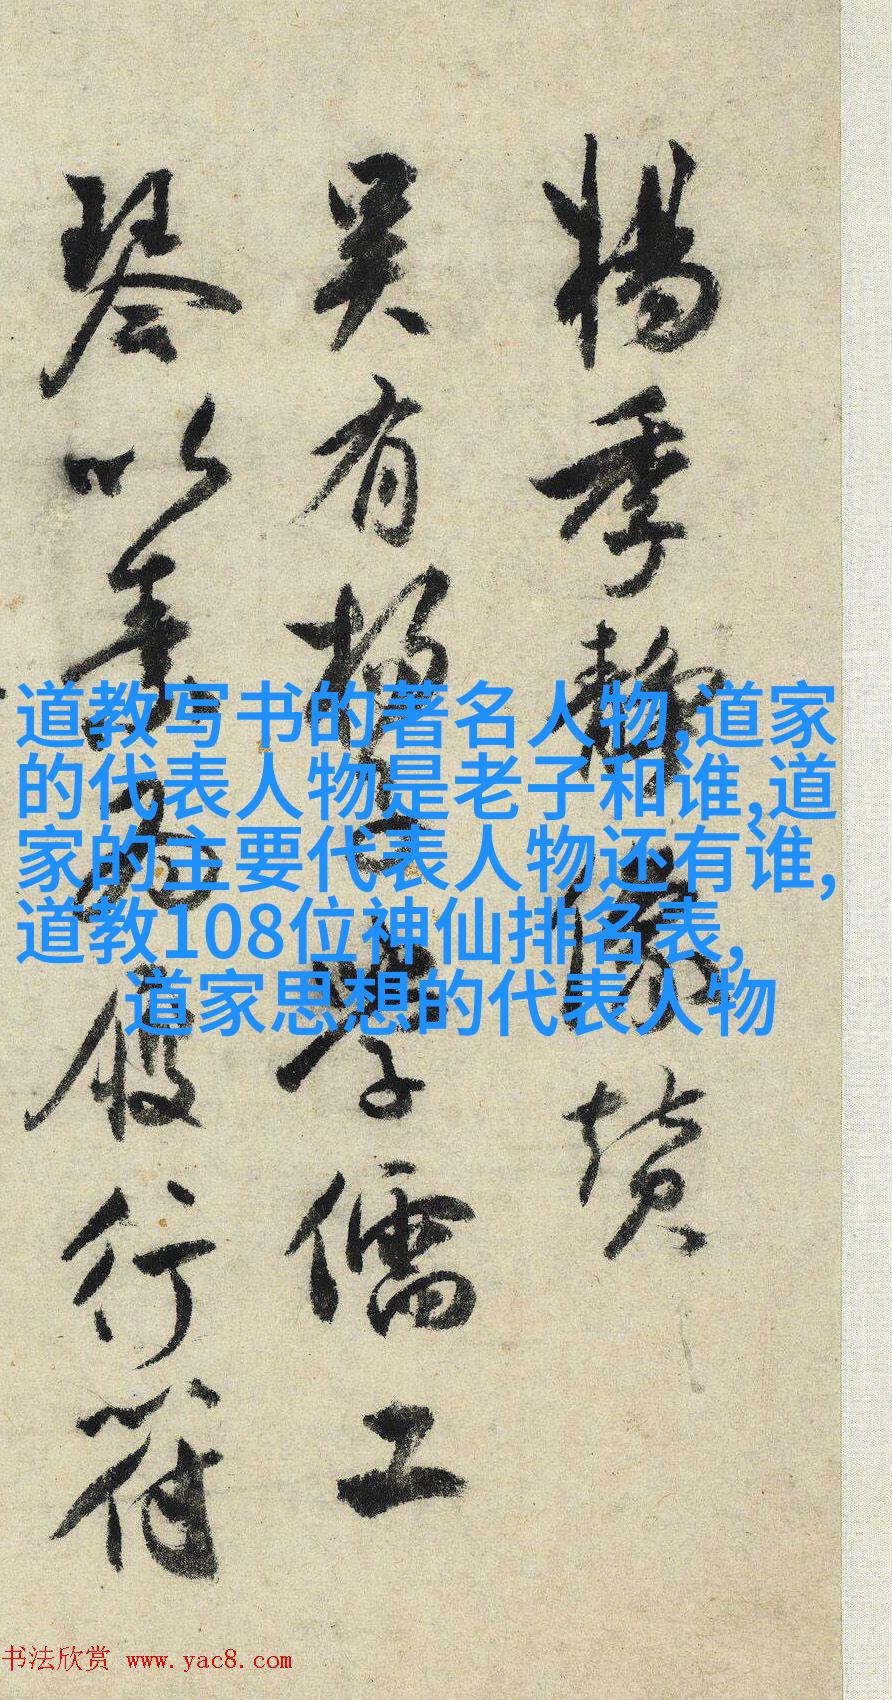 楊季靜像贊
吴有楊學儒工
琴以善為行符
道教写书的著名人物,道家
的代表人物是老子和谁,道
家的主要代表人物还有谁,
道教108位神仙排名表,
道家思想的代表人物
书法欣赏 www.yac8.com